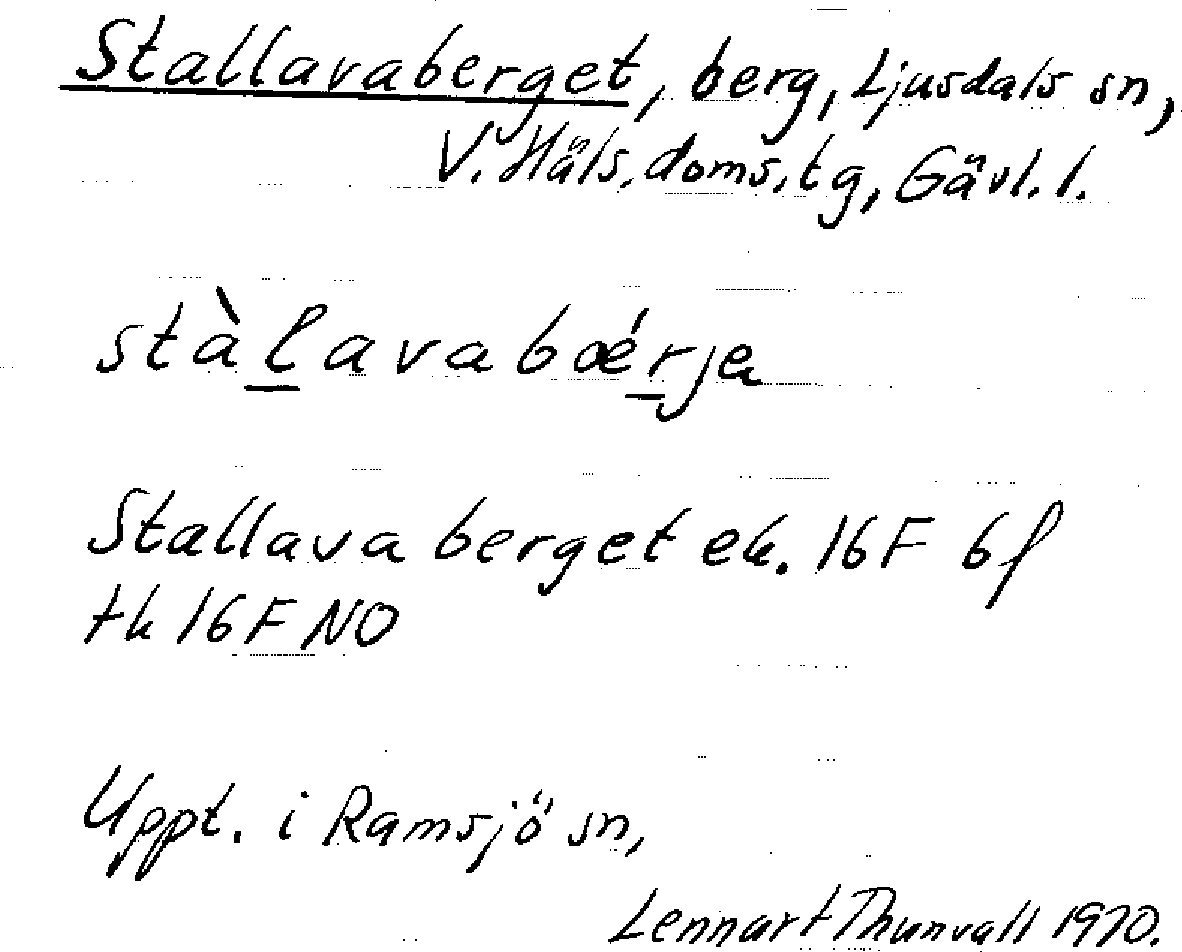 Stallavaberget, berg, Ljusdals sn,
V. Häls. doms. tg, Gävl. l.
stàl̲avabǽr̲ja
Stallavaberget ek. 16F 6f
tk 16F NO
Uppt. i Ramsjö sn,
Lennart Thunvall 1970.